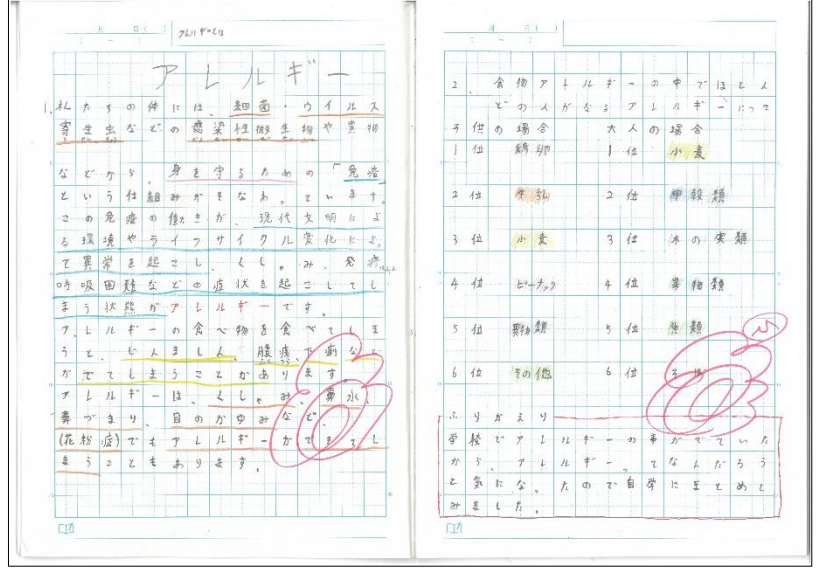 アレルギーとは
アレルギー
1、私たちの体には、細菌・ウイルス
寄生虫などの感染性微生物や異物
などから、身を守るための「免疫」
という仕組みがそなわっています。
この免疫の働きが、現代文明によ
る環境やライフサイクル変化によっ
て異常を起こし、くしゃみ、発疹
呼吸困難などの症状を起こしてし
まう状態がアレルギーです。
アレルギーの食べ物を食べてしま
うと、じんましん、腹痛、下痢など
がでてしまうことがあります。
アレルギーは、くしゃみ、鼻水、
鼻づまり、目のかゆみなど、
(花粉症)でもアレルギーがでてし
まうこともあります。
2、食物アレルギーの中でほとん
どの人がなるアレルギーにって
子供の場合 大人の場合
1位 鶏卵 1位 小麦
2位 牛乳 2位 甲殻類
3位 小麦 3位 木の実類
4位 ピーナッツ 4位 果物類
5位 果物類 5位 魚類
6位 その他 6位
ふりかえり
学校でアレルギーの事がでていた
から、アレルギーってなんだろう
と気になったので自学にまとめて
みました。